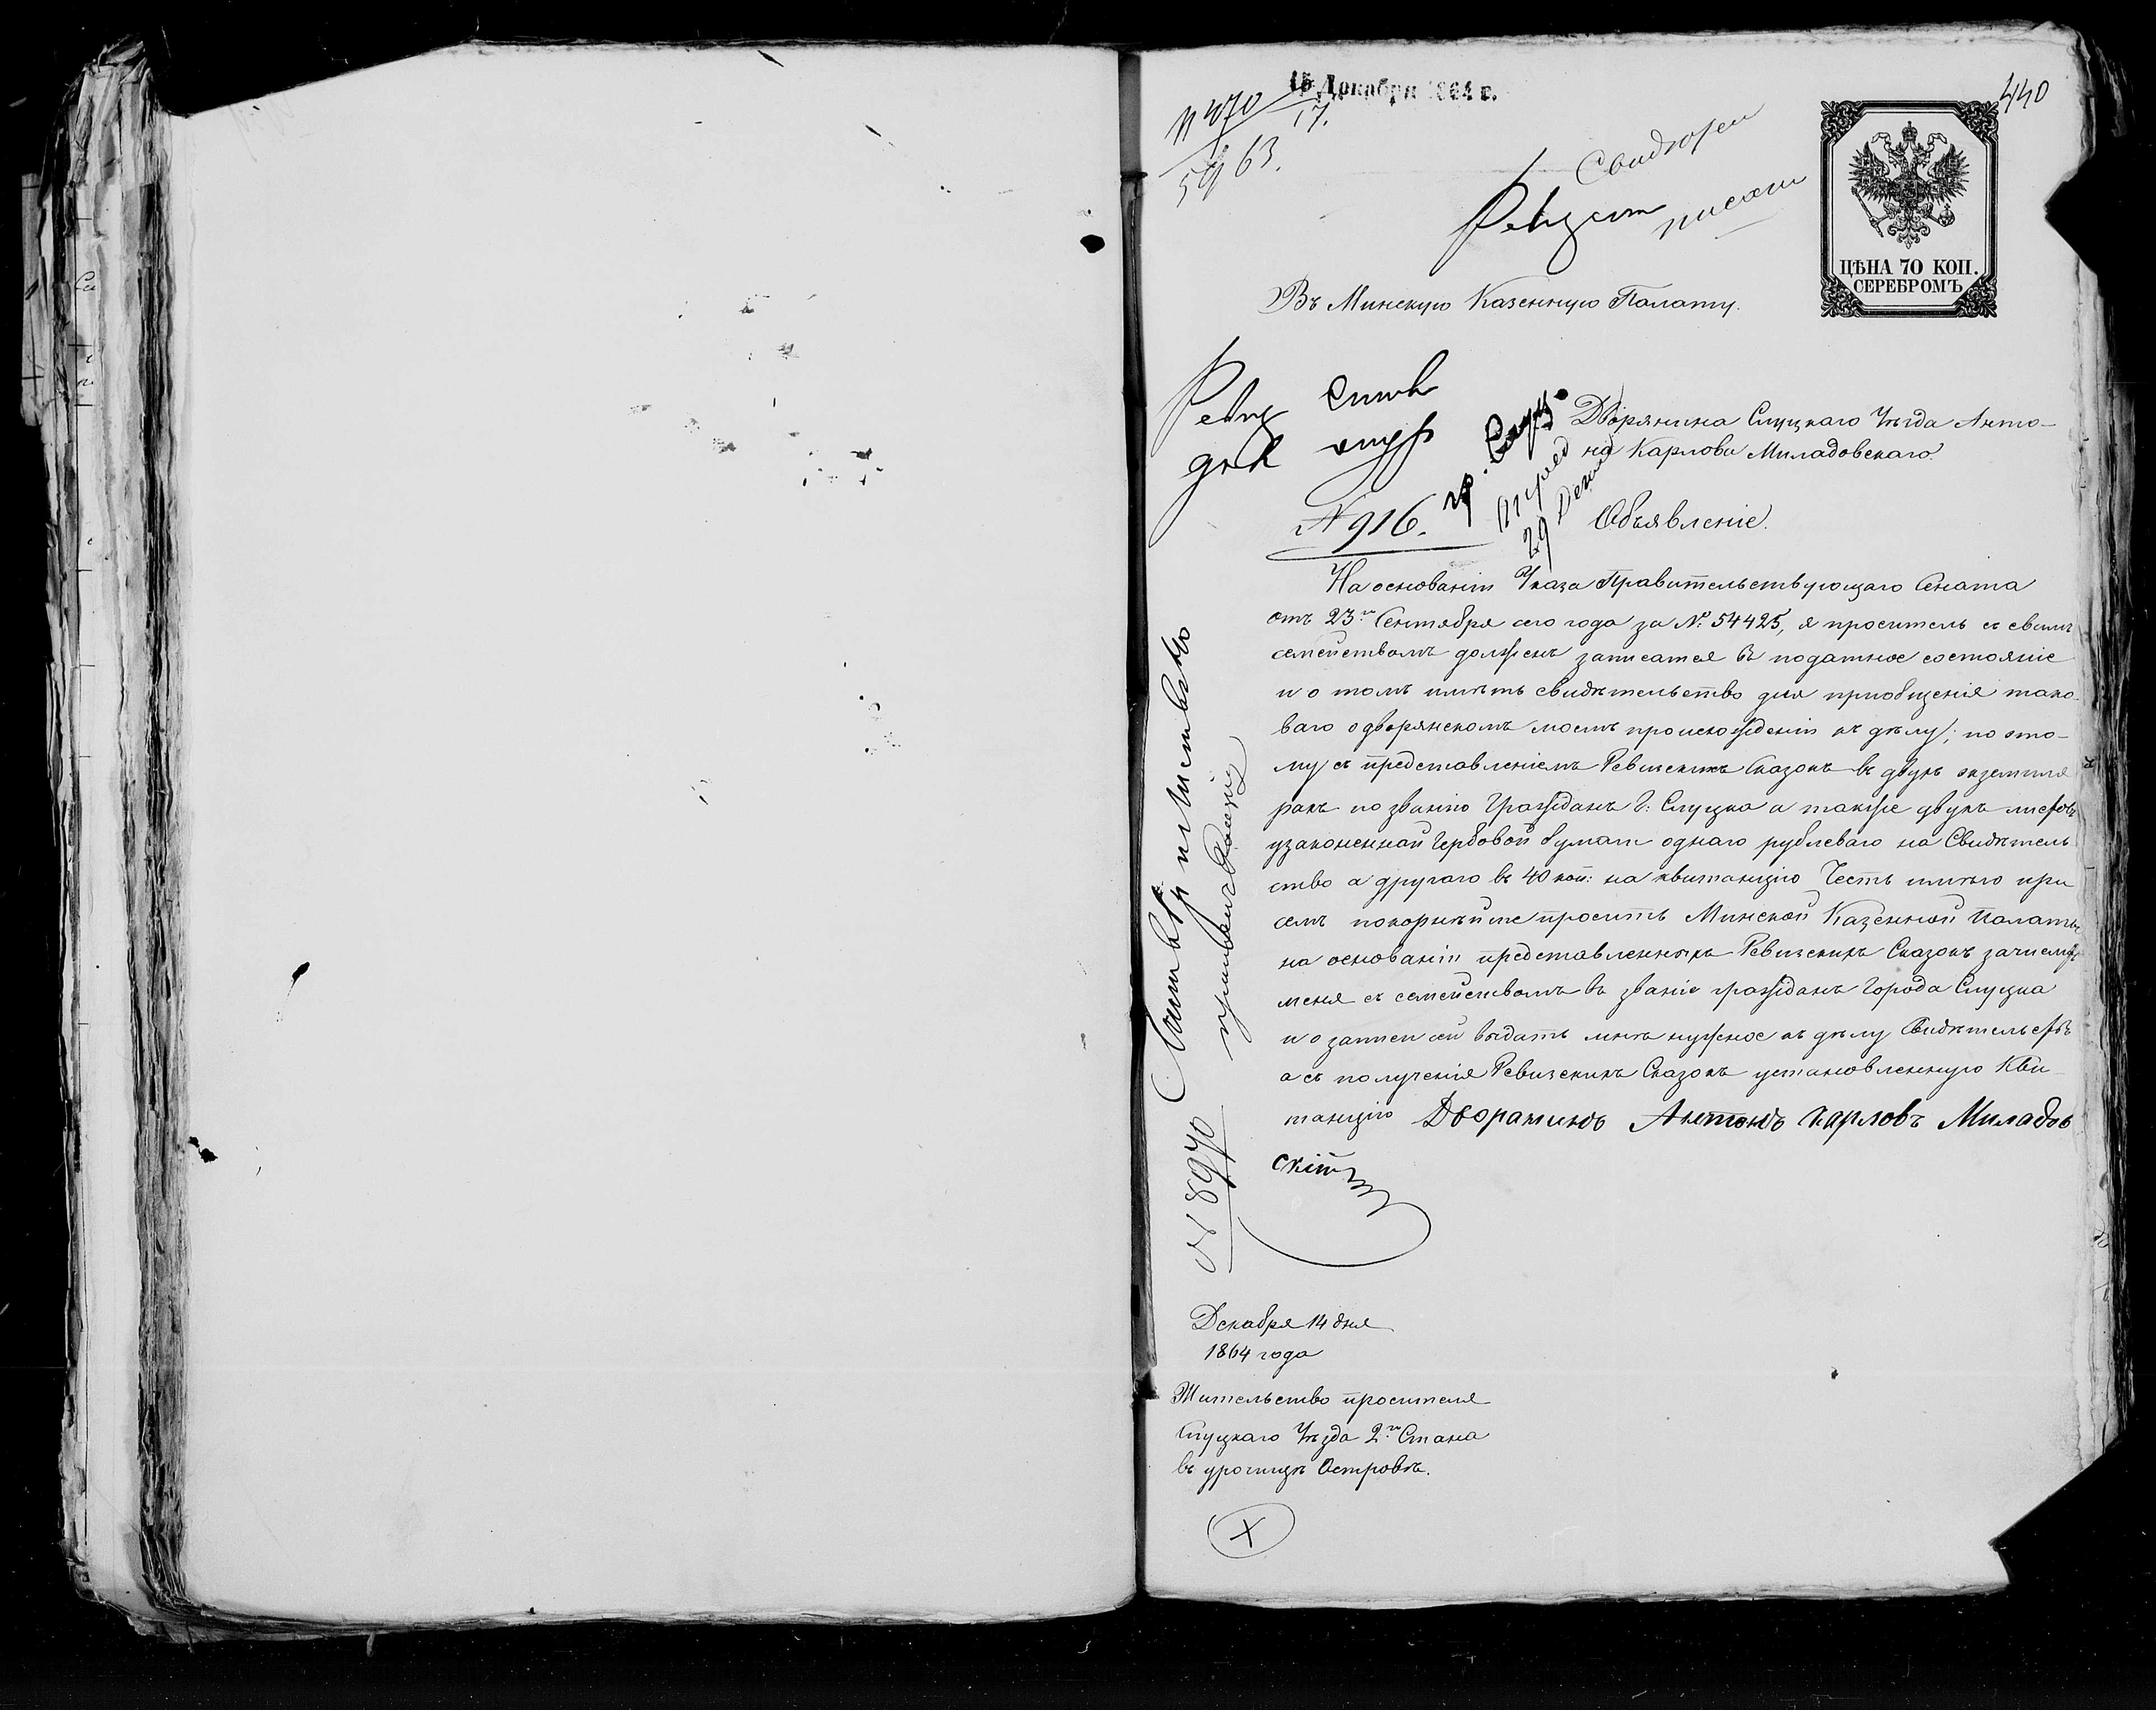 15 Декабря 1864 г.
440
N 470
17.
5963.
ЦѢНА 70 КОП.
СЕРЕБРОМЪ
Въ Минскую Казенную Палату.
Дворянина Слуцкаго Уѣзда Анто-
на Карлова Миладовскаго.
N 916.
Объявленіе.
На основаніи Указа Правительствующаго Сената
отъ 23го Сентября сего года за №: 54425, я проситель съ своимъ
семействомъ долженъ записатся въ податное состояніе
и о томъ имѣть свидѣтельство для пріобщенія тако-
ваго о дворянскомъ моемъ происхожденіи къ дѣлу; по это-
му съ представленіемъ Ревизскихъ Сказокъ въ двухъ экземпля
рахъ по званію Гражданъ Г: Слуцка а также двухъ листовъ
узаконенной Гербовой бумаги однаго рублеваго на Свидѣтель
ство а другаго въ 40 коп: на квитанцію Честь имѣю при
семъ покорнѣйше просить Минской Казенной Палаты
на основаніи представленныхъ Ревизскихъ Сказокъ зачислить
меня съ семействомъ въ званіе гражданъ Города Слуцка
и о записи сей выдать мнѣ нужное къ дѣлу Свидѣтельство
а съ полученія Ревизскихъ Сказокъ установленную Кви-
танцію Дворянинъ Антонъ Карловъ Миладов
скій
N 8970
Декабря 14 дня
1864 года
Жительство просителя
Слуцкаго Уѣзда 2го Стана
въ урочищѣ Островѣ.
X